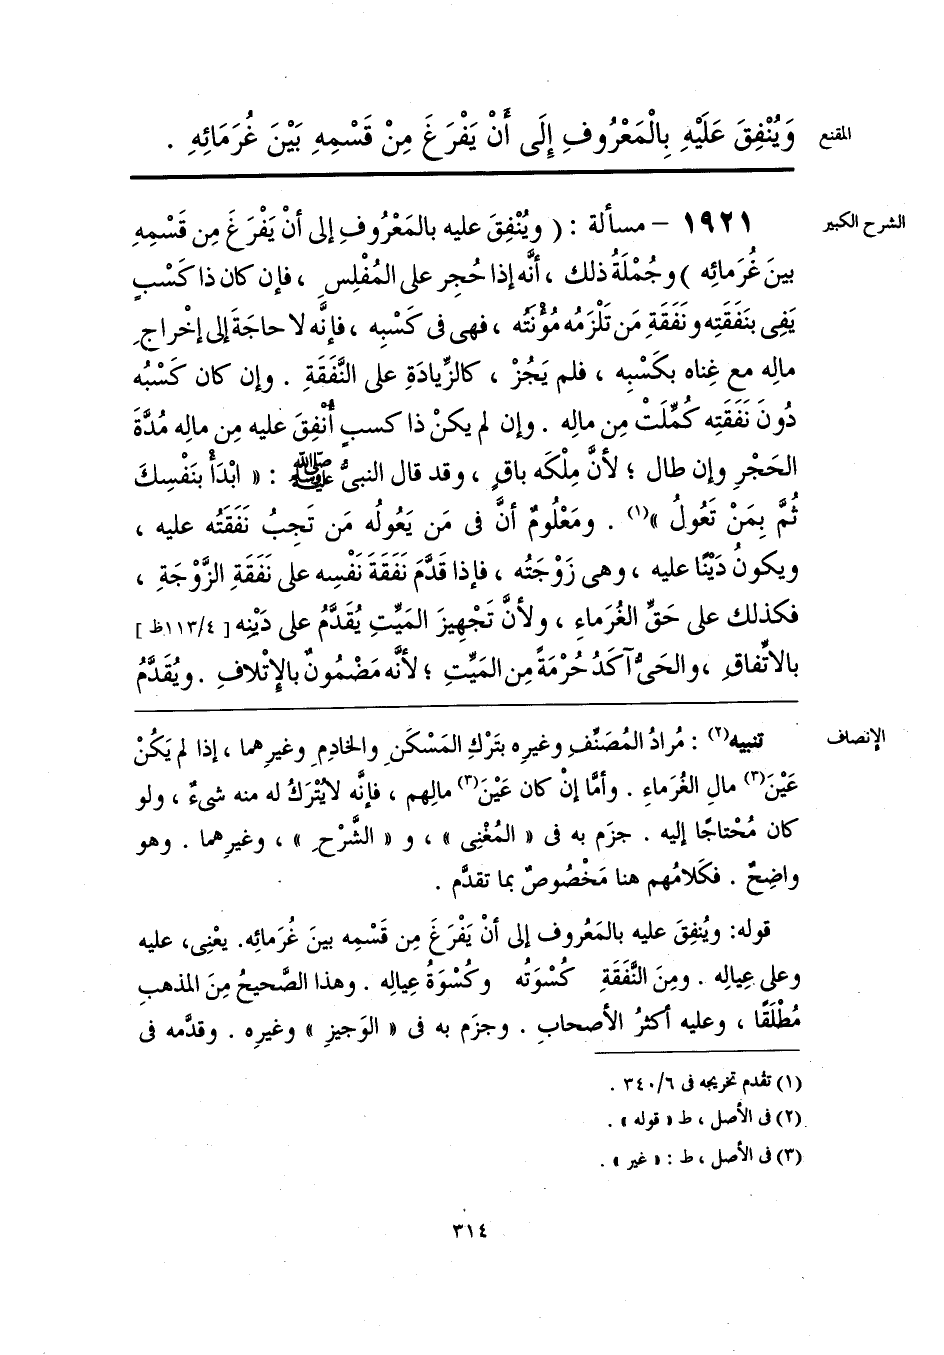 المقنع
وَيُنْفِقَ عَلَيْهِ بِالْمَعْرُوفِ إِلَى أَنْ يَفْرَغَ مِنْ قَسْمِهِ بَيْنَ غُرَمَائِهِ .
الشرح الكبير
١٩٢١ – مسألة : ( ويُنْفِقَ عليه بالمَعْرُوفِ إلى أنْ يَفْرَغَ مِن قَسْمِهِ
بينَ غُرَمائِه ) وجُمْلَةُ ذلك ، أنَّه إذا حُجِر على المُفْلِسِ ، فإن كان ذا كَسْبٍ
يَفِى بنَفَقَتِه ونَفَقَةِ مَن تَلْزَمُه مُؤْنَتُه ، فهى فى كَسْبِه ، فإنَّه لا حاجَةَ إلى إخْراجِ
مالِه مع غِناه بكَسْبِه ، فلم يَجُزْ ، كالزِّيادَةِ على النَّفَقَةِ . وإن كان كَسْبُه
دُونَ نَفَقَتِه كُمِّلَتْ مِن مالِه . وإن لم يكنْ ذا كسبٍ أُنْفِقَ عليه مِن مالِه مُدَّةَ
الحَجْرِ وإن طال ؛ لأنَّ مِلْكَه باقٍ ، وقد قال النبىُّ ﷺ : « ابْدَأْ بنَفْسِكَ
ثُمَّ بِمَنْ تَعُولُ »(١) . ومَعْلُومٌ أنَّ فى مَن يَعُولُه مَن تَجِبُ نَفَقَتُه عليه ،
ويكونُ دَيْنًا عليه ، وهى زَوْجَتُه ، فإذا قَدَّمَ نَفَقَةَ نَفْسِه على نَفَقَةِ الزَّوْجَةِ ،
فكذلك على حَقِّ الغُرَماءِ ، ولأنَّ تَجْهِيزَ المَيِّتِ يُقَدَّمُ على دَيْنِه [ ١١٣/٤ظ ]
بالاتِّفاقِ ، والحَىُّ آكَدُ حُرْمَةً مِن المَيِّتِ ؛ لأنَّه مَضْمُونٌ بالإِتْلافِ . ويُقَدَّمُ
الإنصاف
تنبيه(٢) : مُرادُ المُصَنِّفِ وغيرِه بتَرْكِ المَسْكَنِ والخادِمِ وغيرِهما ، إذا لم يَكُنْ
عَيْنَ(٣) مالِ الغُرَماءِ . وأمَّا إنْ كان عَيْنَ(٣) مالِهم ، فإنَّه لا يُتْرَكُ له منه شىءٌ ، ولو
كان مُحْتاجًا إليه . جزَم به فى « المُغْنِى » ، و « الشَّرْحِ » ، وغيرِهما . وهو
واضِحٌ . فكَلامُهم هنا مَخْصُوصٌ بما تقدَّم .
قوله: ويُنفِقَ عليه بالمَعْرُوفِ إلى أنْ يَفْرَغَ مِن قَسْمِه بينَ غُرَمائِه. يعْنِى، عليه
وعلى عِيالِه . ومِنَ النَّفَقَةِ كُسْوَتُه وكُسْوَةُ عِيالِه . وهذا الصَّحيحُ مِنَ المذهبِ
مُطْلَقًا ، وعليه أكثرُ الأصحابِ . وجزَم به فى « الوَجيزِ » وغيرِه . وقدَّمه فى
(١) تقدم تخريجه فى ٣٤٠/٦ .
(٢) فى الأصل ، ط « قوله » .
(٣) فى الأصل ، ط : « غير » .
٣١٤